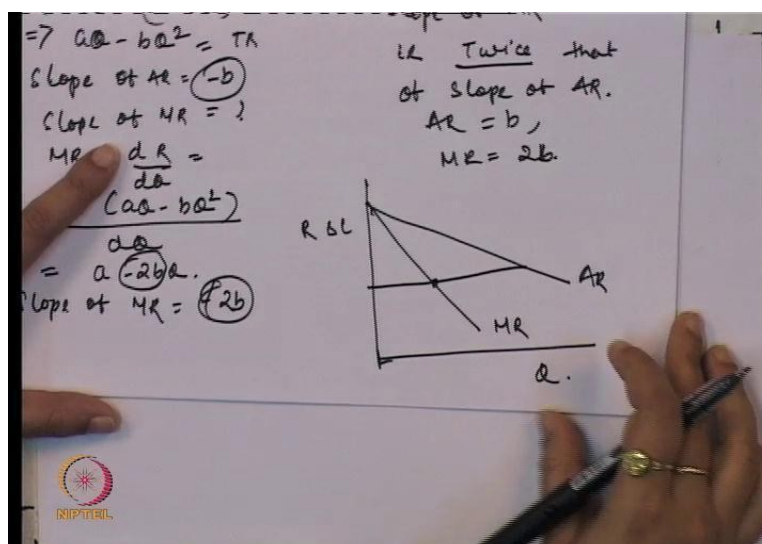 => aQ - bQ² = TR
Slope of AR = -b
Slope of MR = ?
MR dR =
dQ
(aQ - bQ²)
dQ
= a -2bQ.
Slope of MR = -2b
is Twice that
of Slope of AR.
AR = b,
MR = 2b.
R &C
AR
MR
Q.
1
NPTEL